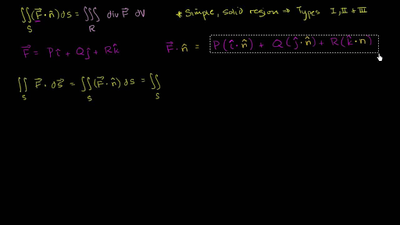 ∬_S (F⃗ · n̂) ds = ∭_R div F⃗ dV
* Simple, solid region → Types I, II + III
F⃗ = Pî + Qĵ + Rk̂
F⃗ · n̂ = P(î · n̂) + Q(ĵ · n̂) + R(k̂ · n̂)
∬_S F⃗ · dS⃗ = ∬_S (F⃗ · n̂) ds = ∬_S